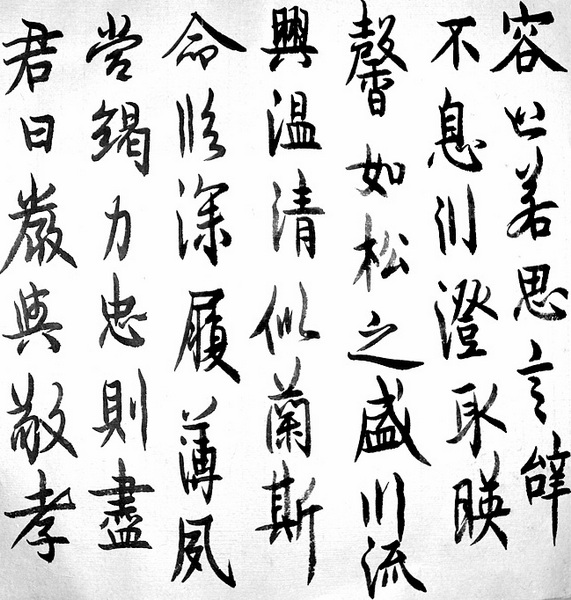 容止若思言辭
不息淵澄取暎
馨如松之盛川流
興温清似蘭斯
命臨深履薄夙
當竭力忠則盡
君曰嚴與敬孝